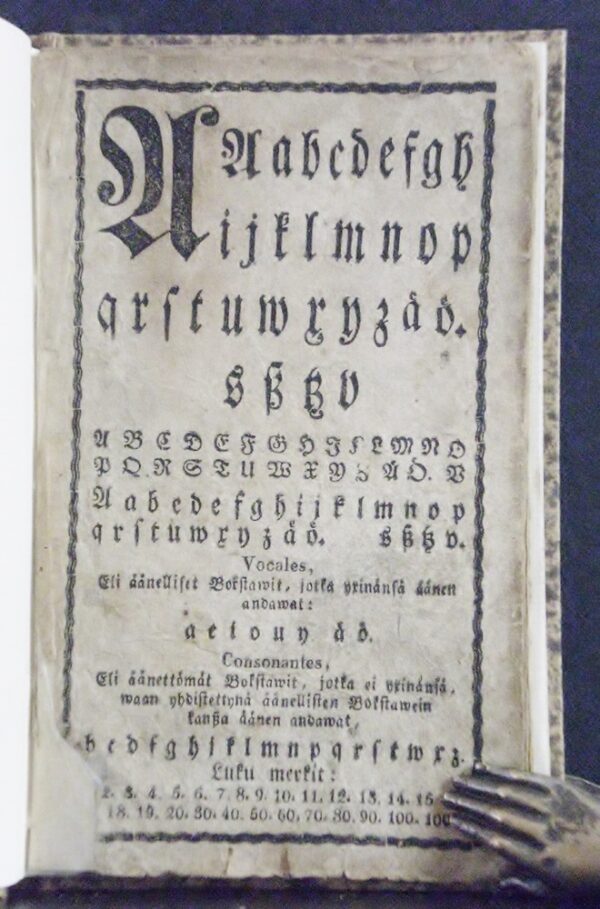 A A a b c d e f g h
i j k l m n o p
q r ſ t u w x y z å ö.
s ß tz v
A B C D E F G H I K L M N O
P Q. R S T U W X Y Z Å Ö. V
A a b c d e f g h i j k l m n o p
q r ſ t u w x y z å ö. s ß tz v.
Vocales,
Eli äänelliſet Bokſtawit, jotka yxinänſä äänen
andawat:
a e i o u y å ö.
Conſonantes,
Eli äänettömät Bokſtawit, jotka ei yxinänſä,
waan yhdiſtettynä äänelliſten Bokſtawein
kanßa äänen andawat,
b c d f g h j k l m n p q r ſ t w x z.
Luku merkit:
2. 3. 4. 5. 6. 7. 8. 9. 10. 11. 12. 13. 14. 15
18. 19. 20. 30. 40. 50. 60. 70. 80. 90. 100.